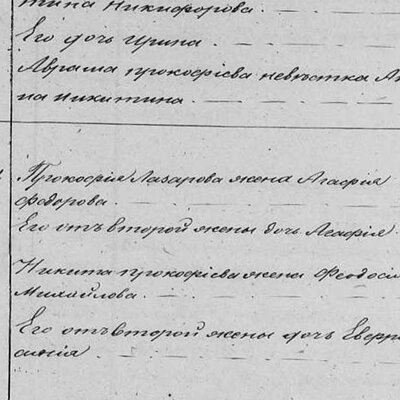 тина Никифорова.
Его дочь Ирина.
Аврама прокофіева невѣстка
на никитина.
Прокофія Лазарова жена Агафія
федорова.
Его отъ второй жены дочь Агафія.
Никита прокофіева жена Феодосія
Михайлова.
Его отъ второй жены дочь Евпра
синія